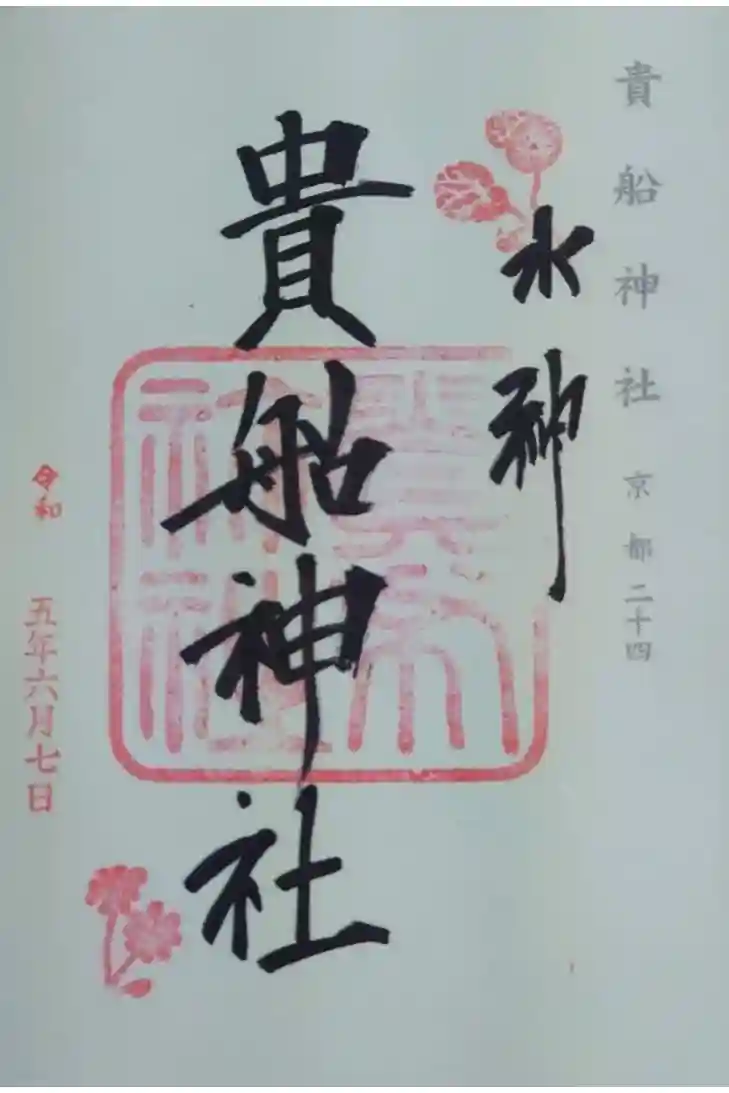 貴船神社 京都二十四
水神
貴船神社
令和 五年六月七日